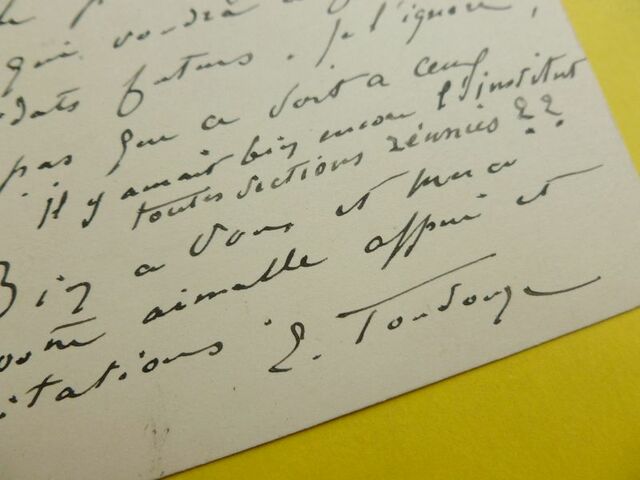 qui voudra
futurs. Je l'ignore,
pas que ce soit à ceux
Il y aurait bien encore l'institut
toutes sections réunies ??
Bien à vous et merci
votre aimable appui et
itations.
E. Toudouze